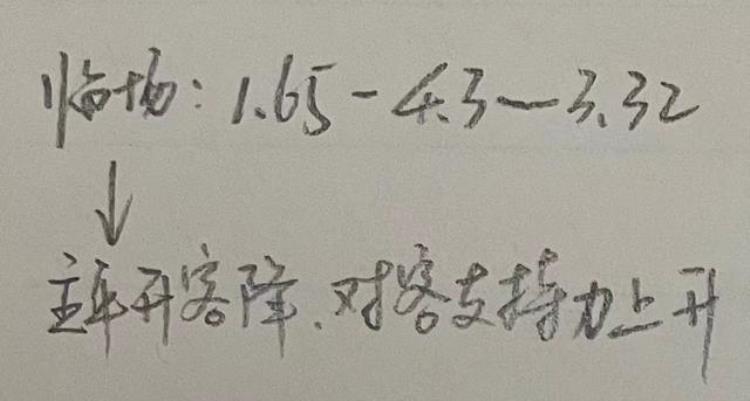 临场：1.65-4.3—3.32
↓
主平升客降、对客支持力上升